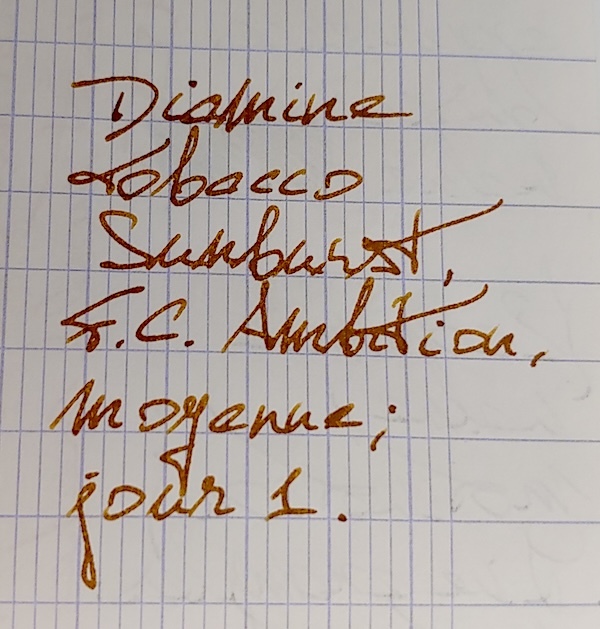 Diamine
Tobacco
Sunburst,
F.C. Ambition,
moyenne;
jour 1.